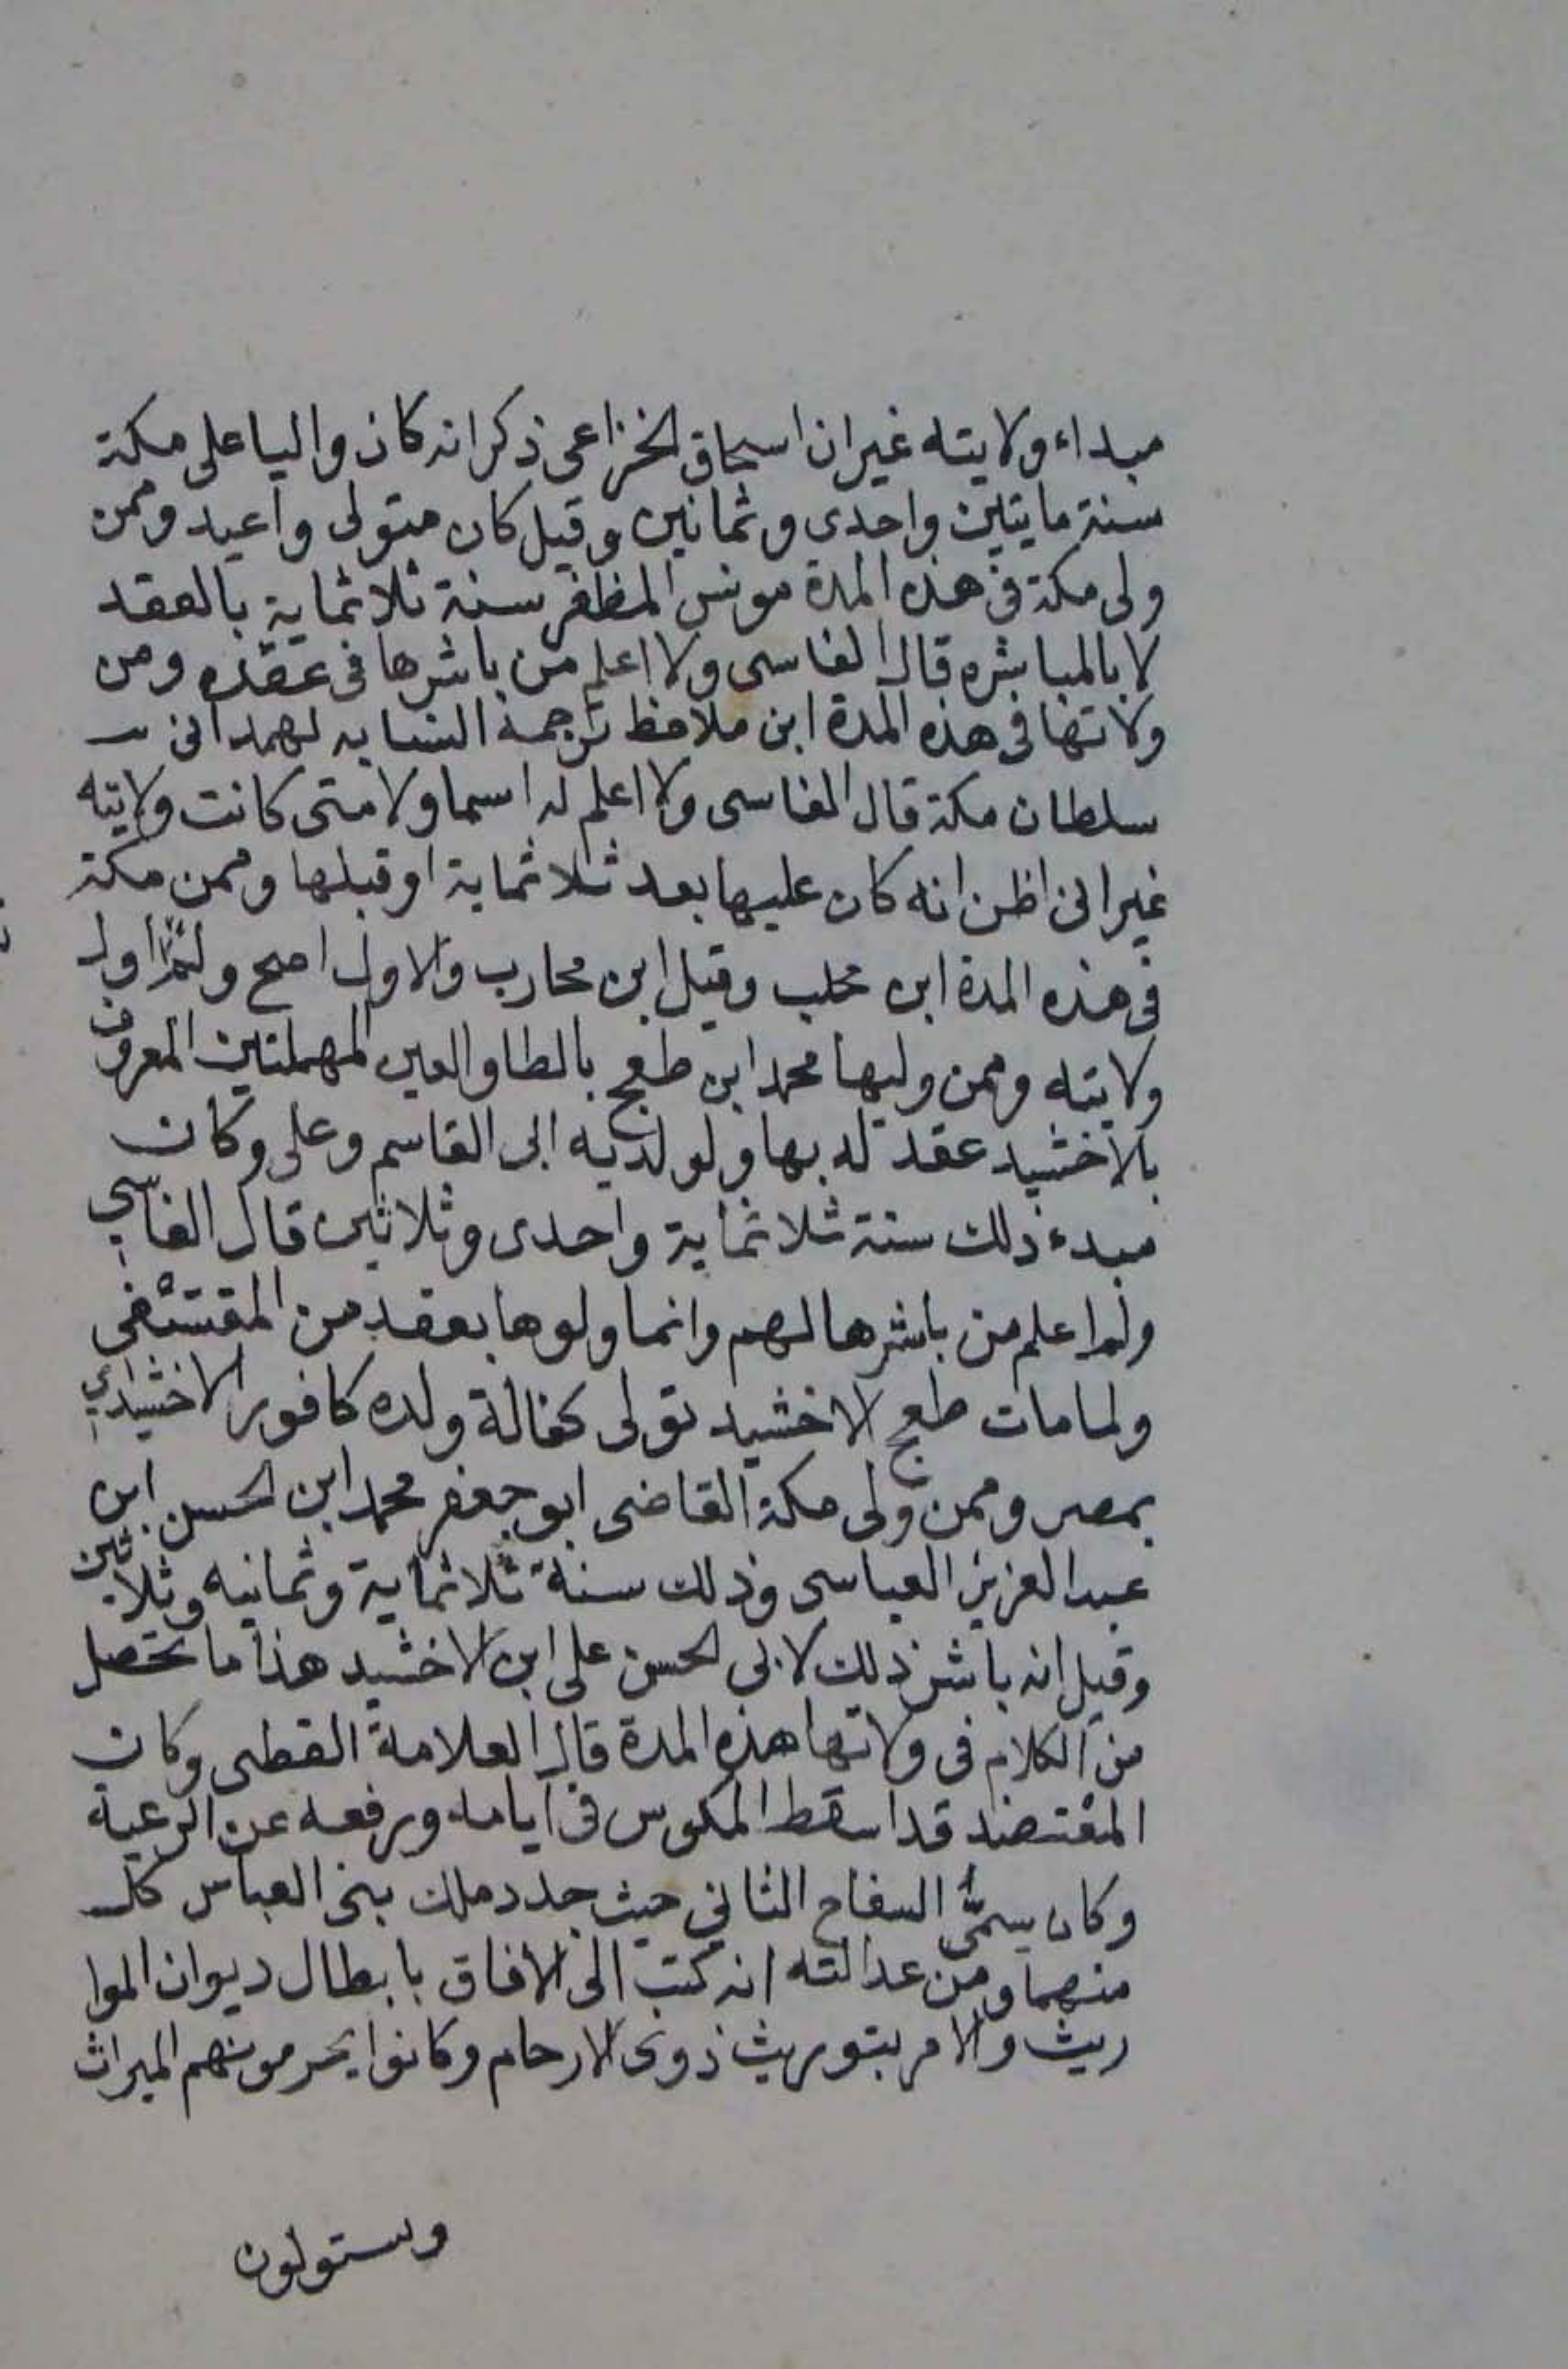 مبداء ولايته غير ان اسحاق الخزاعى ذكر انه كان واليا على مكة
سنة مايتين واحدى وثمانين وقيل كان متولى واعيد وممن
ولى مكة فى هذه المدة مونس المظفر سنة ثلاثماية بالعقد
لا بالمباشره قال الفاسى ولا اعلم من باشرها فى عقده ومن
ولاتها فى هذه المدة ابن ملاحظ ترجمة النسابه لهمدانى
سلطان مكة قال الفاسى ولا اعلم له اسما ولا متى كانت ولايته
غير انى اظن انه كان عليها بعد ثلاثماية او قبلها وممن مكة
فى هذه المدة ابن مخلب وقيل ابن محارب والاول اصح ولم اول
ولايته وممن وليها محمد ابن طعج بالطا والعين المهملتين المعروف
بالاخشيد عقد له بها ولولديه ابى القاسم وعلى وكان
مبدء ذلك سنة ثلاثماية واحدى وثلاثين قال الفاسي
ولم اعلم من باشرها لهم وانما ولوها بعقد من
ولما مات طعج الاخشيد تولى كفالة ولده كافور الاخشيدي
بمصر وممن ولى مكة القاضى ابو جعفر محمد ابن الحسن ابن
عبد العزيز العباسى وذلك سنة ثلاثماية وثمانيه وثلاثين
وقيل انه باشر ذلك لابى الحسن على ابن الاخشيد هذا ما تحصل
من الكلام فى ولاتها هذه المدة قال العلامة القطبى وكان
المعتضد قد اسقط المكوس فى ايامه ورفعه عن الرعية
وكان يسمَّى السفاح الثاني حيث جدد ملك بنى العباس كل
منهما ومن عدالته انه كتب الى الافاق بابطال ديوان الموا
ريث والامر بتوريث ذوى الارحام وكانوا يحرمونهم الميراث
ويستولون